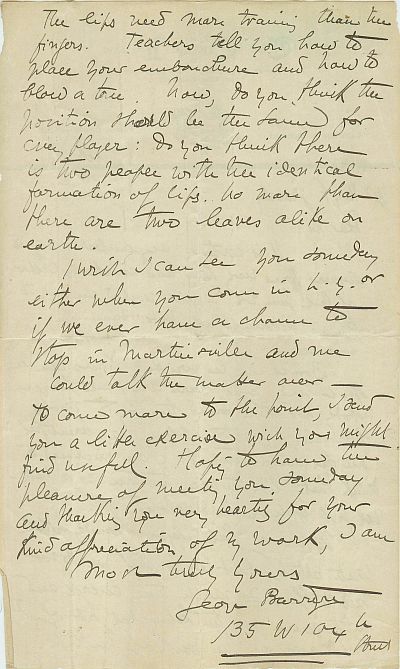 The lips need more training than the
fingers. Teachers tell you how to
place your embouchure and how to
blow a tone. Now, do you think the
position should be the same for
every player: do you think there
is two people with the identical
formation of lips. No more than
there are two leaves alike on
earth.
I wish I can see you someday
either when you come in N.Y. or
if we ever have a chance to
stop in Martinsville and we
could talk the matter over —
To come more to the point, I send
you a little exercise wich you might
find usefull. Hoping to have the
pleasure of meeting you someday
and thanking you very heartily for your
kind appreciation of my work, I am
Most truly yours
Georges Barrère
135 W 104th
Street